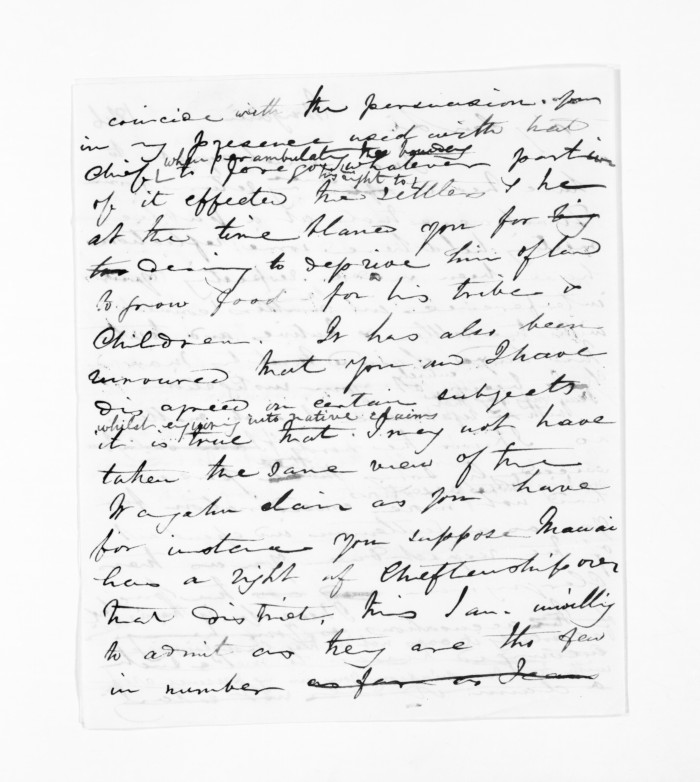 coincide with the persuasion you
in my presence used with that
when perambulating the boundary
Chief to forego whatever portion
his right to
of it effected the settlers & he
at the time blamed you for
desiring to deprive him of land
to grow food for his tribe &
Children. It has also been
rumoured that you and I have
dis agreed on certain subjects
whilst enquiring into native claims
it is true that I may not have
taken the same view of the
claim as you have
for instance you suppose Mawai
has a right of Chieftenship over
that district, this I am unwilling
to admit as they are tho few
in number as far as I can